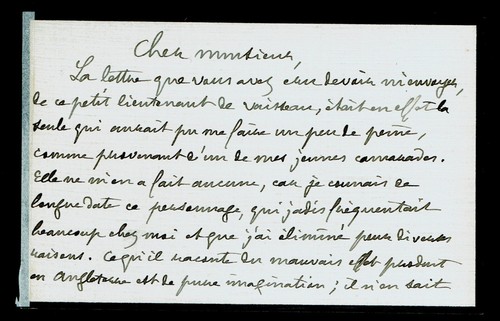 Cher monsieur,
La lettre que vous avez cru devoir m'envoyer,
de ce petit lieutenant de vaisseau, était en effet la
seule qui aurait pu me faire un peu de peine,
comme provenant d'un de mes jeunes camarades.
Elle ne m'en a fait aucune, car je connais de
longue date ce personnage, qui jadis fréquentait
beaucoup chez moi et que j'ai éliminé pour diverses
raisons. Ce qu'il raconte du mauvais effet produit
en Angleterre est de pure imagination ; il n'en sait